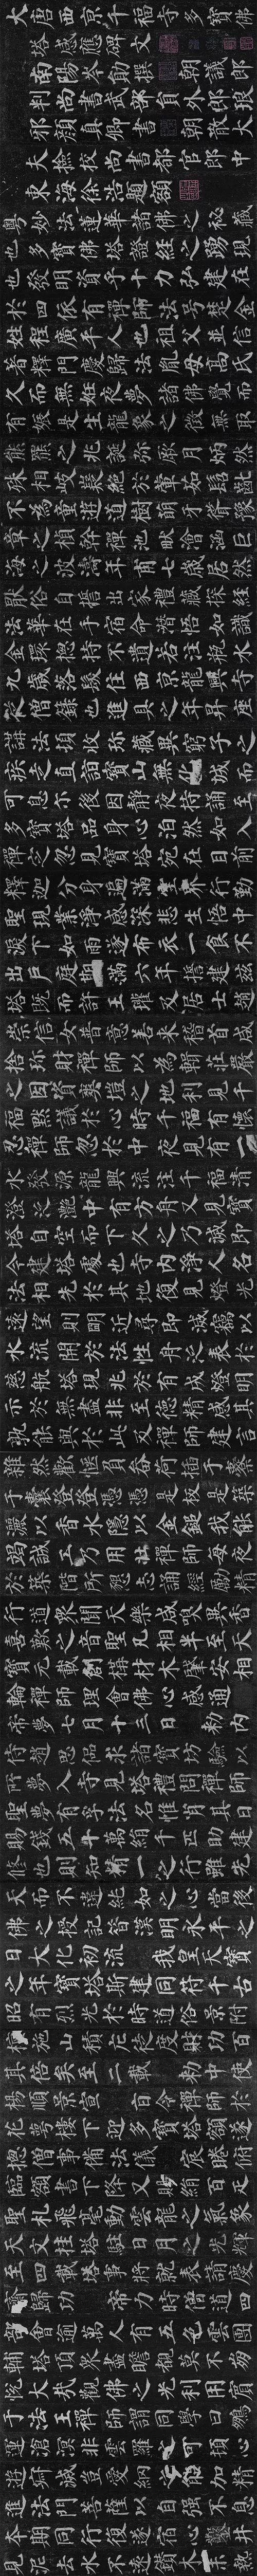 大唐西京千福寺多寶佛
塔感應碑文
南陽岑勛撰 朝議郎
判尚書武部員外郎琅
邪顏真卿書 朝散大
夫撿校尚書都官郎中
東海徐浩題額
粵妙法蓮華諸佛之秘藏
也多寶佛塔證經之踴現
也發明資乎十力弘建在
於四依有禪師法号楚金
姓程廣平人也祖父並信
著釋門慶歸法胤母高氏
久而無姙夜夢諸佛覺而
有娠是生龍象之徵無取
熊羆之兆誕弥厥月炳然
殊相岐嶷絕於葷茹髫齓
不為童遊道樹萌牙聳豫
章之楨幹禪池畎澮涵巨
海之波濤年甫七歲居然
猒俗自誓出家禮藏探經
法華在手宿命潛悟如識
金環揔持不遺若注瓶水
九歲落髮住西京龍興寺
從僧籙也進具之年昇座
講法頓收珎藏異窮子之
疾走直詣寶山無化城而
可息尔後因靜夜持誦至
多寶塔品身心泊然如入
禪定忽見寶塔宛在目前
釋迦分身遍滿空界行勤
聖現業淨感深悲生悟中
淚下如雨遂布衣一食不
出戶庭期滿六年誓建茲
塔既而許王瓘及居士趙
崇信女普意善來稽首咸
捨珎財禪師以為輯莊嚴
之因資爽塏之地利見千
福默議於心時千福有懷
忍禪師忽於中夜見有一
水發源龍興流注千福清
澄泛灩中有方舟又見寶
塔自空而下久之乃滅即
今建塔處也寺內淨人名
法相先於其地復見燈光
遠望則明近尋即滅竊以
水流開於法性舟泛表於
慈航塔現兆於有成燈明
示於無盡非至德精感其
孰能與於此及禪師建言
雜然歡愜負畚荷插于橐
于囊登登憑憑是板是築
灑以香水隱以金鎚我能
竭誠工乃用壯禪師每夜
於築階所懇志誦經勵精
行道眾聞天樂咸嗅異香
喜歎之音聖凡相半至天
寶元載創構材木肇安相
輪禪師理會佛心感通
帝夢七月十三日 勅內
侍趙思偘求諸寶坊驗以
所夢入寺見塔禮問禪師
聖夢有孚法名惟肖其日
賜錢五十萬絹千匹助建
修也則知精一之行雖先
天而不違純如之心當後
佛之授記昔漢明永平之
日大化初流 我皇天寶
之年寶塔斯建同符千古
昭有烈光於時道俗景附
檀施山積庀徒度財功百
其倍矣至二載 勅中使
楊順景宣 旨令禪師於
花萼樓下迎多寶塔額遂
揔僧事備法儀 宸睠俯
臨額書下降又賜絹百疋
聖札飛毫動雲龍之氣象
天文挂塔駐日月之光輝
至四載塔事將就表請慶
齋歸功 帝力時僧道四
部會逾萬人有五色雲團
輔塔頂眾盡瞻覩莫不崩
悅大哉觀佛之光利用賓
于法王禪師謂同學曰鵬
運滄溟非雲羅之可頓心
遊寂滅豈愛網之能加精
進法門菩薩以自強不息
本期同行復遂宿心鑿井
見泥去水不遠鑽木未熱